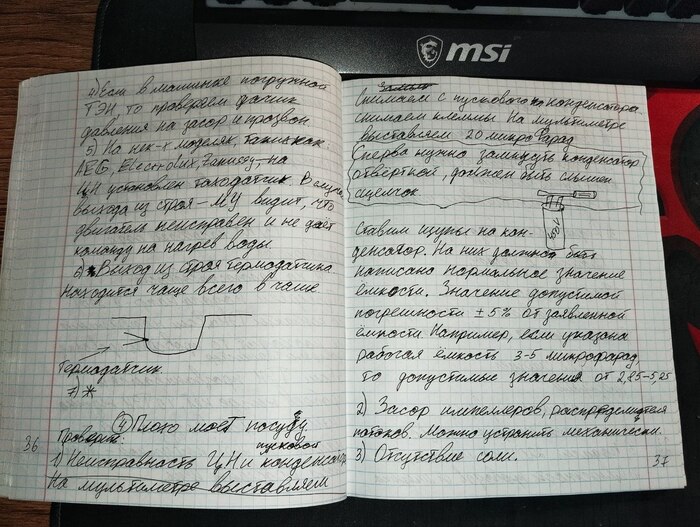 msi
4) Если в машинке погружной
ТЭН то проверяем датчик
давления на засор и прозвон
5) На нек-х моделях, таких как
AEG, Electrolux, Zanussi, на
ЦН установлен таходатчик. В случае
выхода из строя – МУ видит, что
двигатель неисправен и не даёт
команду на нагрев воды.
6) Выход из строя термодатчика
Находится чаще всего в чаше
Термодатчик.
7) *
④ Плохо моет посуду
Проверить:
пусковой
1) Неисправность ЦН и конденсатор
На мультиметре выставляем
36
Снимаем с пускового конденсатора.
Снимаем клеммы. На мультиметре
выставляем 20 микро Фарад
Сперва нужно замкнуть конденсатор
отверткой, должен быть слышен
щелчок
Ставим щупы на кон-
денсатор. На них должно быть
написано нормальное значение
емкости. Значение допустимой
погрешности ±5% от заявленной
ёмкости. Например, если указана
рабочая емкость 3-5 микрофарад,
то допустимые значения от 2,85–5,25
2) Засор импеллеров, распределителя
потоков. Можно устранить механически.
3) Отсутствие соли.
37